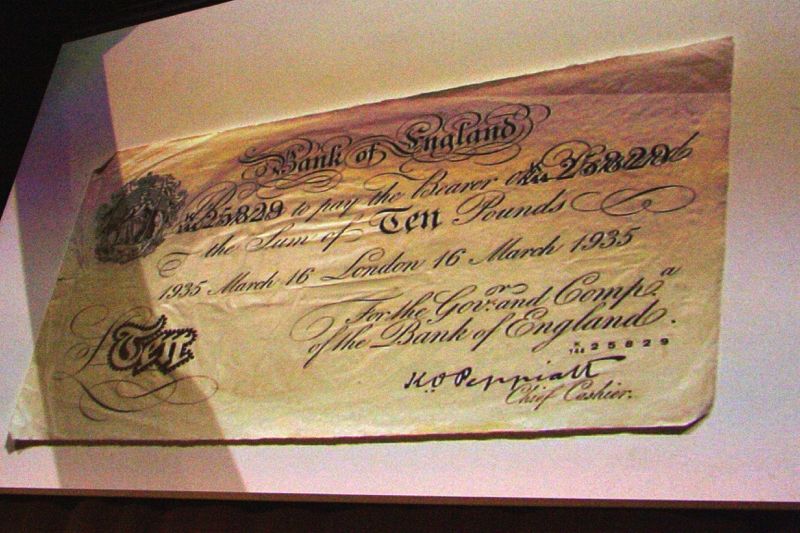 Bank of England
25829 to pay the Bearer on Demand 25829
the Sum of Ten Pounds
1935 March 16 London 16 March 1935
For the Govr. and Compa.
of the Bank of England.
K 144 25829
£Ten
K.O Peppiatt
Chief Cashier.